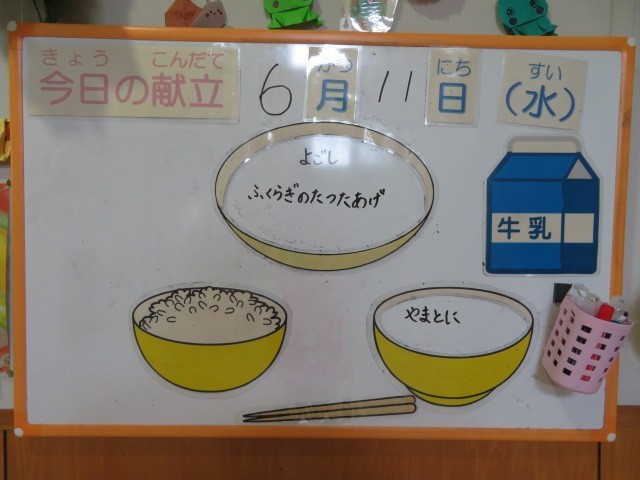 きょう こんだて
今日の献立
6月11日(水)
がつ にち すい
よごし
ふくらぎのたつたあげ
牛乳
やまとに